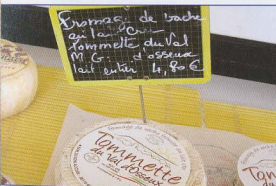 Fromage de vache
au lait Cru
Tommette du Val
M.G. d'osseux
lait entier 4,80 €
Tommette
du val d'osseux
Tomme